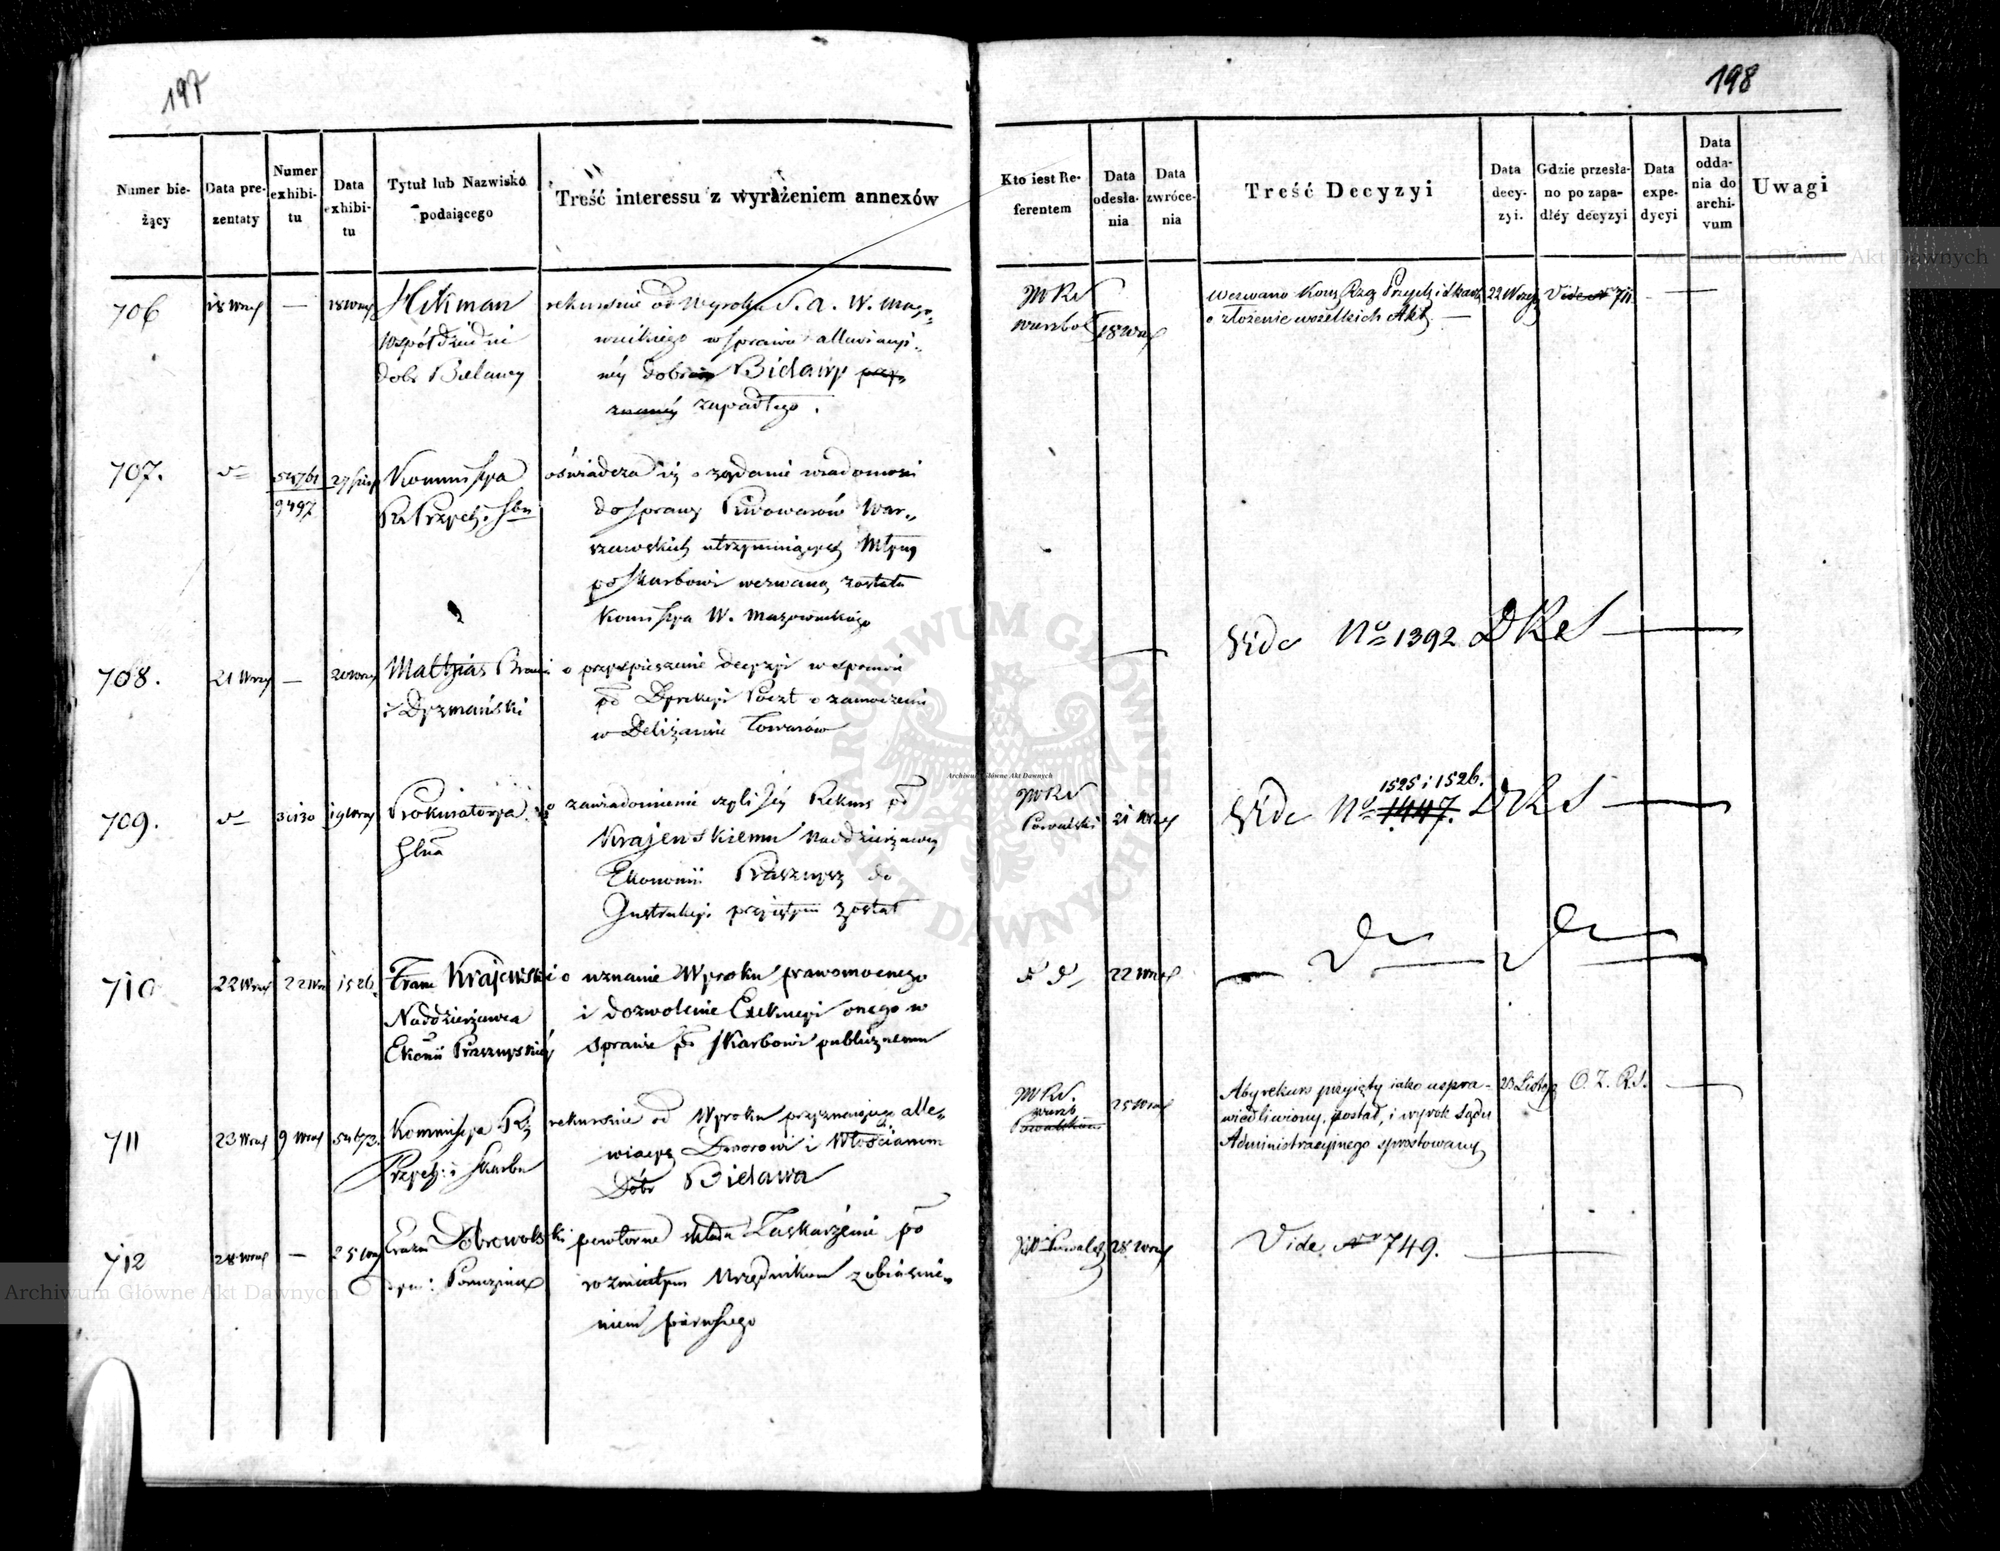 197
Numer bie-
żący
Data pre-
zentaty
Numer
exhibi-
tu
Data
exhibi-
tu
Tytuł lub Nazwisko
podaiącego
Treść interessu z wyrażeniem annexów
706
18 Wrześ
—
18 Wrześ
Hikman
Współdziedzic
dobr Bielawy
rekursuie od Wyroku S. A. W. Mazo-
wieckiego w sprawie alluwiacyi-
néy dobr Bielawy
zapadłego.
707.
54761
9497
27 Sierp
Kommissya
Rz Przych. i Sbu
oświadcza iż o żądanie wiadomości
do sprawy Piwowarów War-
szawskich utrzymuiących Młyny
po Skarbowi wezwaną została
Komissya W. Mazowieckiego
708.
21 Wrześ
—
20 Wrześ
Mathias
i Dyzmański
o przyspieszenie decyzyi w sprawie
po Dyrekcyi Poczt o zamoczenie
w Deliżansie Towarów
709.
30130
19 Wrześ
Prokuratorya
Glna
o zawiadomienie czyli Jéy Rekurs po
Krajewskiemu Naddzierżawcy
Ekonomii Przasnysz do
Instrukcyi przyiętym został
710
22 Wrześ
22 Wrz
1526.
Franc Krajewski
Naddzierżawca
Ekonii Przasnyskiéy
o uznanie Wyroku prawomocnego
i dozwolenie Exekucyi onego w
sprawie po Skarbowi publicznemu
711
23 Wrześ
9 Wrześ
54673.
Kommissya Rz
Przych: i Skarbu
rekursuie od Wyroku przyznaiącego alle-
wiacyę Dworowi i Włościanom
Dóbr Bielawa
712
28 Wrześ
—
25 Wrz
Dobrowolski
powtórne składa Zaskarżenie po
rozmaitym Urzędnikom z obiaśnie-
niem pierwszego
198
Kto iest Re-
ferentem
Data
odesła-
nia
Data
zwróce-
nia
Treść Decyzyi
Data
decy-
zyi.
Gdzie przesła-
no po zapa-
dłéy decyzyi
Data
expe-
dycyi
Data
odda-
nia do
archi-
vum
Uwagi
MRS
18 Wrześ
Wezwano Kom Rzą Przych i Skarbu
o złożenie wszelkich Akt. —
22 Wrześ
Vide No 711
—
Vide No 1392 DKeS —
MRS
Powalski
21 Wrześ
1525 i 1526.
Vide No 1447. DKS —
22 Wrześ
MRS.
Powalskiemu
25 Wrześ
Aby rekurs przyięty iako uspra-
wiedliwiony, postał, i wyrok Sądu
Administracyjnego sprostowany
23 Listop
O. Z. RS.
—
28 Wrześ
Vide No 749. —
Archiwum Główne Akt Dawnych
Archiwum Główne Akt Dawnych
Archiwum Główne Akt Dawnych
ARCHIWUM GŁÓWNE AKT DAWNYCH